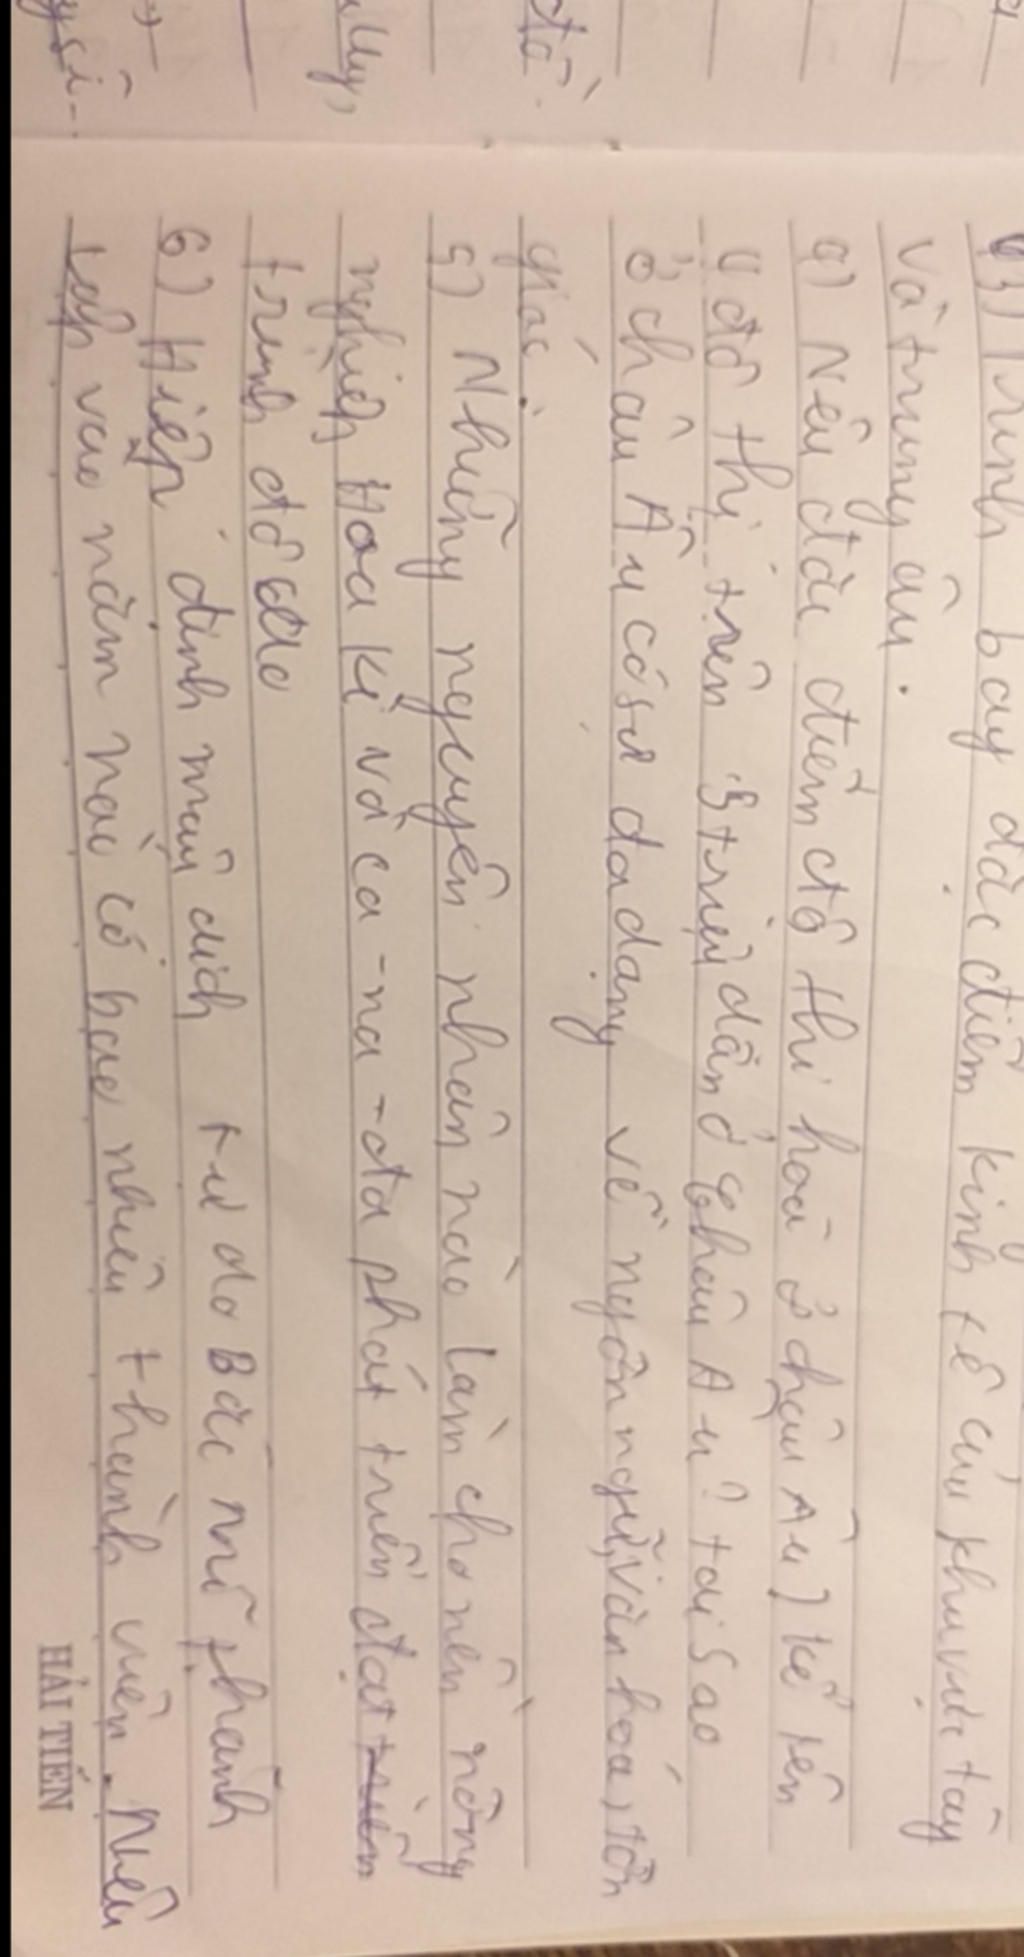 3) Trình bày đặc điểm kinh tế của khu vực tây
và trung âu.
4) Nêu đặc điểm đô thi hoá ở châu Âu) kể tên
4 đô thị trên 5 triệu dân ở châu Au? tại sao
ở châu Âu có sự đa dạng về ngôn ngữ, văn hoá, tôn
giáo.
5) Những nguyên nhân nào làm cho nền nông
nghiệp Hoa kì và ca-na-đa phát triển đạt
trình độ cao
6) Hiệp định mậu dịch tự do Bắc mĩ thành
lập vào năm nào có bao nhiêu thành viên. Nêu
HẢI TIẾN
đô.